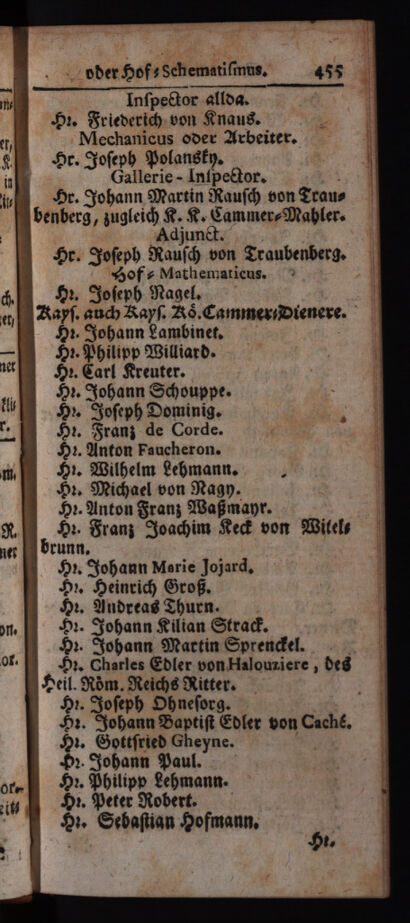 oder Hof-Schematismus. 455
Inspector allda.
Hr. Friederich von Knaus.
Mechanicus oder Arbeiter.
Hr. Joseph Polansky.
Gallerie-Inspector.
Hr. Johann Martin Rausch von Trau-
benberg, zugleich K. K. Cammer-Mahler.
Adjunct.
Hr. Joseph Rausch von Traubenberg.
Hof-Mathematicus.
Hr. Joseph Nagel.
Kays. auch Kays. Kö. Cammer-Dienere.
Hr. Johann Lambinet.
Hr. Philipp Williard.
Hr. Carl Kreuter.
Hr. Johann Schouppe.
Hr. Joseph Dominig.
Hr. Franz de Corde.
Hr. Anton Faucheron.
Hr. Wilhelm Lehmann.
Hr. Michael von Nagy.
Hr. Anton Franz Waßmayr.
Hr. Franz Joachim Keck von Witels-
brunn.
Hr. Johann Marie Jojard.
Hr. Heinrich Groß.
Hr. Andreas Thurn.
Hr. Johann Kilian Strack.
Hr. Johann Martin Sprenckel.
Hr. Charles Edler von Halouziere, des
Heil. Röm. Reichs Ritter.
Hr. Joseph Ohnesorg.
Hr. Johann Baptist Edler von Caché.
Hr. Gottfried Gheyne.
Hr. Johann Paul.
Hr. Philipp Lehmann.
Hr. Peter Robert.
Hr. Sebastian Hofmann.
Hr.